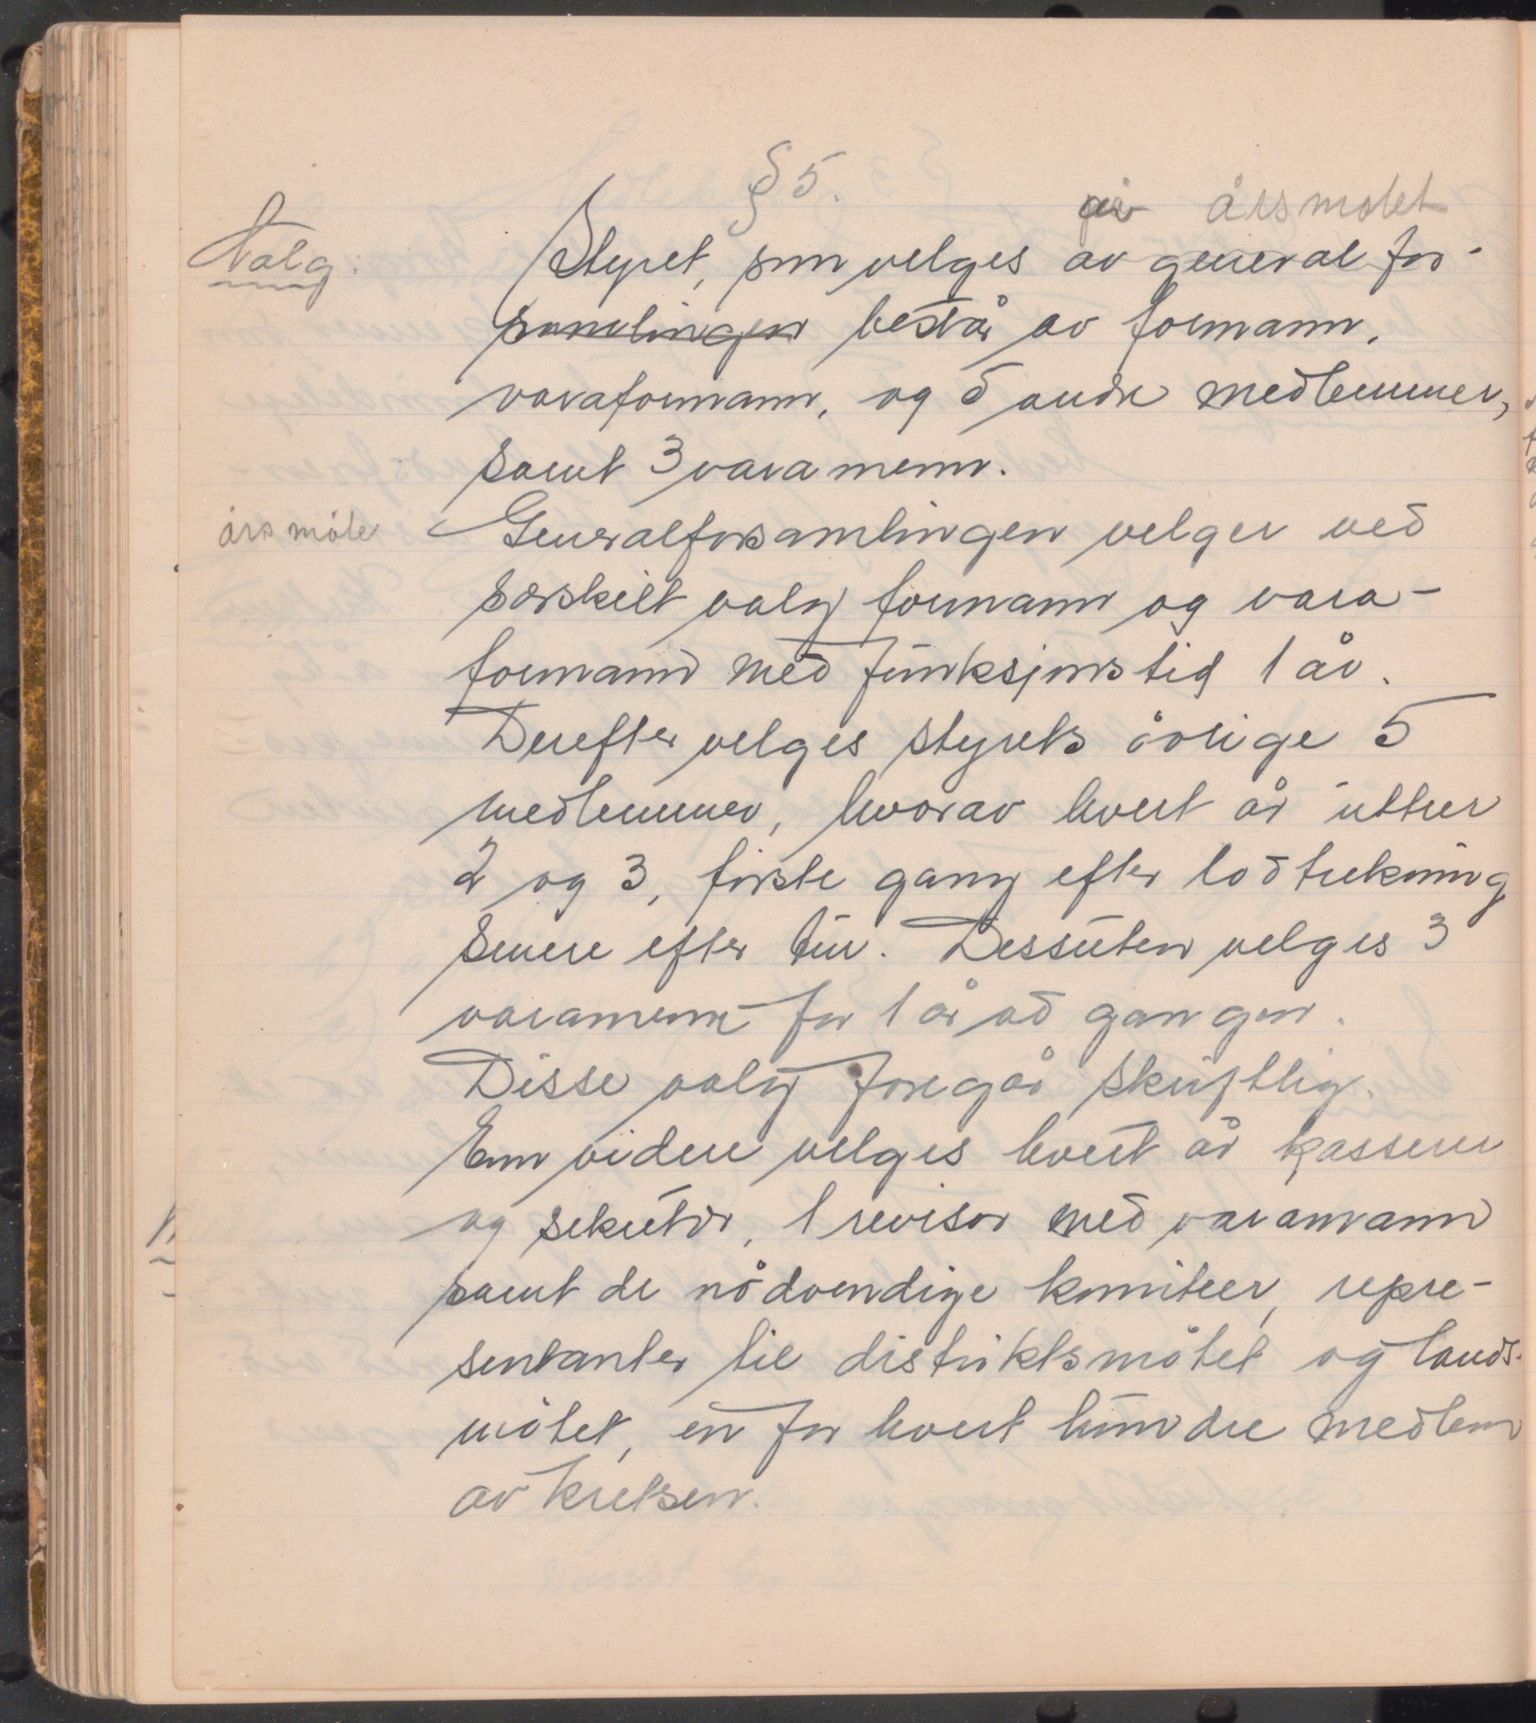 § 5.
på årsmøtet
Valg.
Styret, som velges av generalfor-
samlingen består av formann,
varaformann, og 5 andre medlemmer,
samt 3 varamenn.
års møte
Generalforsamlingen velger ved
særskilt valg formann og vara-
formann med funksjonstid 1 år.
Derefter velges styrets øvrige 5
medlemmer, hvorav hvert år uttrer
2 og 3, første gang efter lodtrekning
senere efter tur. Dessuten velges 3
varamenn for 1 år ad gangen.
Disse valg foregår skriftlig.
Enn videre velges hvert år kasserer
og sekretær, 1 revisor med varamann
samt de nødvendige komiteer, repre-
sentanter til distriktsmøtet og lands-
møtet, en for hvert hundre medlem
av kretsen.